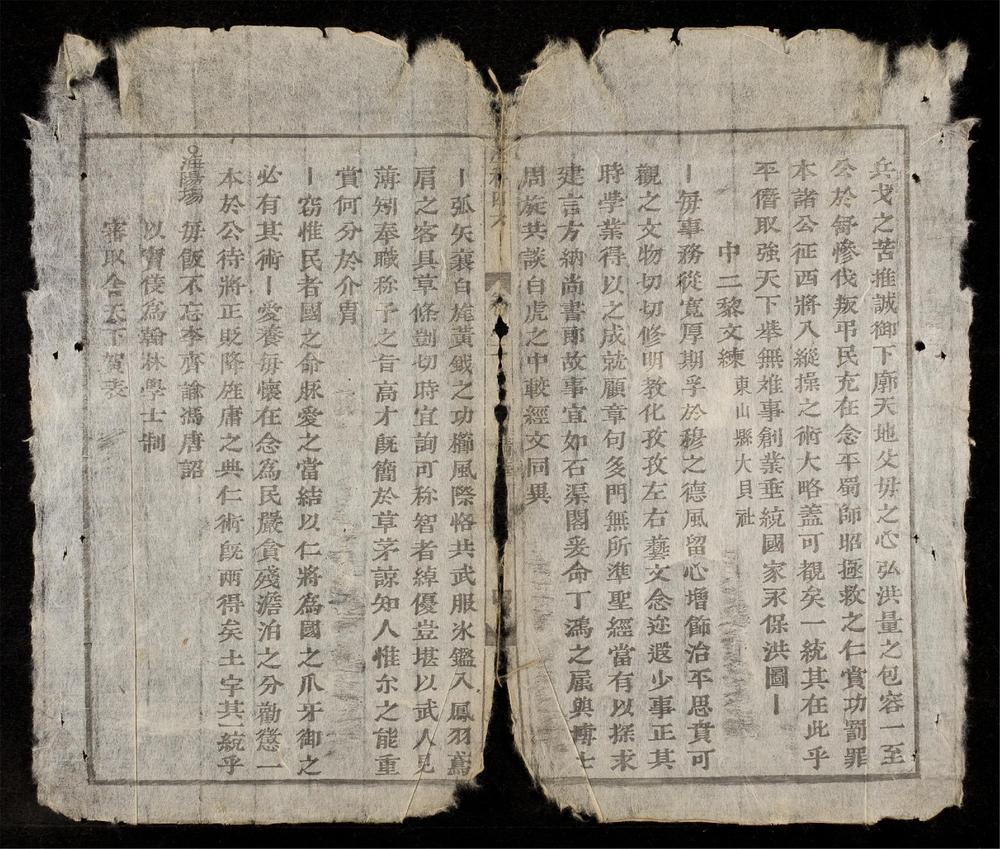 兵戈之苦推誠御下廓天地父母之心弘洪量之包容一至
公於舒慘伐叛弔民充在念平蜀師昭拯救之仁賞功罰罪
本諸公征西將入縱操之術大略蓋可覩矣一統其在此乎
平僭取強天下舉無难事創業垂統國家永保洪圖丨
中二黎文練 東山縣大貝社
丨每事務從寬厚期孚於穆之德風留心增飾治平思賁可
觀之文物切切修明教化孜孜左右藝文念迩選少事正其
時學業得以之成就顧章句多門無所準聖經當有以探求
建言方納尚書郎故事宜如石渠閣爰命丁鴻之属與博士
周旋共談白虎之中較經文同異
丨弧矢襄白旄黃鉞之功櫛風際恪共武服氷鑑入鳳羽鳶
肩之客具草條剴切時宜詢可称智者綽優豈堪以武人見
薄矧奉職称予之旨高才旣簡於草茅諒知人惟尔之能重
賞何分於介冑
丨窃惟民者國之命脉愛之當結以仁將為國之爪牙御之
必有其術丨愛養每懷在念為民嚴貪殘澹泊之分勸懲一
本於公待將正貶降旌庸之典仁術旣兩得矣土宇其統乎
海陽場 每飯不忘李齊諭馮唐詔
以竇儀為翰林學士制
審取全天下賀表